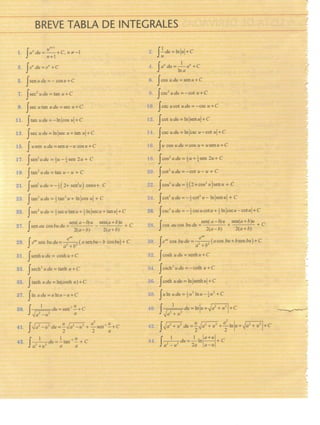 BREVE TABLA DE INTEGRALES
1. ∫uⁿ du = uⁿ⁺¹/(n+1) + C, n ≠ −1
2. ∫(1/u) du = ln|u| + C
3. ∫eᵘ du = eᵘ + C
4. ∫aᵘ du = (1/ln a) aᵘ + C
5. ∫sen u du = −cos u + C
6. ∫cos u du = sen u + C
7. ∫sec² u du = tan u + C
8. ∫csc² u du = −cot u + C
9. ∫sec u tan u du = sec u + C
10. ∫csc u cot u du = −csc u + C
11. ∫tan u du = −ln|cos u| + C
12. ∫cot u du = ln|sen u| + C
13. ∫sec u du = ln|sec u + tan u| + C
14. ∫csc u du = ln|csc u − cot u| + C
15. ∫u sen u du = sen u − u cos u + C
16. ∫u cos u du = cos u + u sen u + C
17. ∫sen² u du = ½u − ¼ sen 2u + C
18. ∫cos² u du = ½u + ¼ sen 2u + C
19. ∫tan² u du = tan u − u + C
20. ∫cot² u du = −cot u − u + C
21. ∫sen³ u du = −⅓(2 + sen² u) cos u + C
22. ∫cos³ u du = ⅓(2 + cos² u) sen u + C
23. ∫tan³ u du = ½ tan² u + ln|cos u| + C
24. ∫cot³ u du = −½ cot² u − ln|sen u| + C
25. ∫sec³ u du = ½ sec u tan u + ½ ln|sec u + tan u| + C
26. ∫csc³ u du = −½ csc u cot u + ½ ln|csc u − cot u| + C
27. ∫sen au cos bu du = sen(a−b)u/2(a−b) − sen(a+b)u/2(a+b) + C
28. ∫cos au cos bu du = sen(a−b)u/2(a−b) + sen(a+b)u/2(a+b) + C
29. ∫eᵃᵘ sen bu du = eᵃᵘ/(a²+b²) (a sen bu − b cos bu) + C
30. ∫eᵃᵘ cos bu du = eᵃᵘ/(a²+b²) (a cos bu + b sen bu) + C
31. ∫senh u du = cosh u + C
32. ∫cosh u du = senh u + C
33. ∫sech² u du = tanh u + C
34. ∫csch² u du = −coth u + C
35. ∫tanh u du = ln(cosh u) + C
36. ∫coth u du = ln|senh u| + C
37. ∫ln u du = u ln u − u + C
38. ∫u ln u du = ½u² ln u − ¼u² + C
39. ∫1/√(a²−u²) du = sen⁻¹ (u/a) + C
40. ∫1/√(a²+u²) du = ln|u + √(a²+u²)| + C
41. ∫√(a²−u²) du = (u/2)√(a²−u²) + (a²/2) sen⁻¹ (u/a) + C
42. ∫√(a²+u²) du = (u/2)√(a²+u²) + (a²/2) ln|u + √(a²+u²)| + C
43. ∫1/(a²+u²) du = (1/a) tan⁻¹ (u/a) + C
44. ∫1/(a²−u²) du = (1/2a) ln|(a+u)/(a−u)| + C